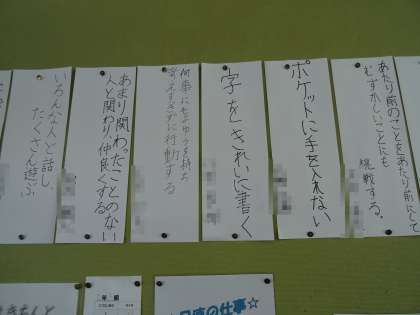 あたり前のことをあたり前にして
むずかしいことにも
挑戦する。
ポケットに手を入れない
字をきれいに書く
何事にもよゆうを持ち
考えすぎずに行動する
あまり関わったことのない
人と関わり、仲良くする
いろんな人と話し
たくさん遊ぶ
の仕事☆